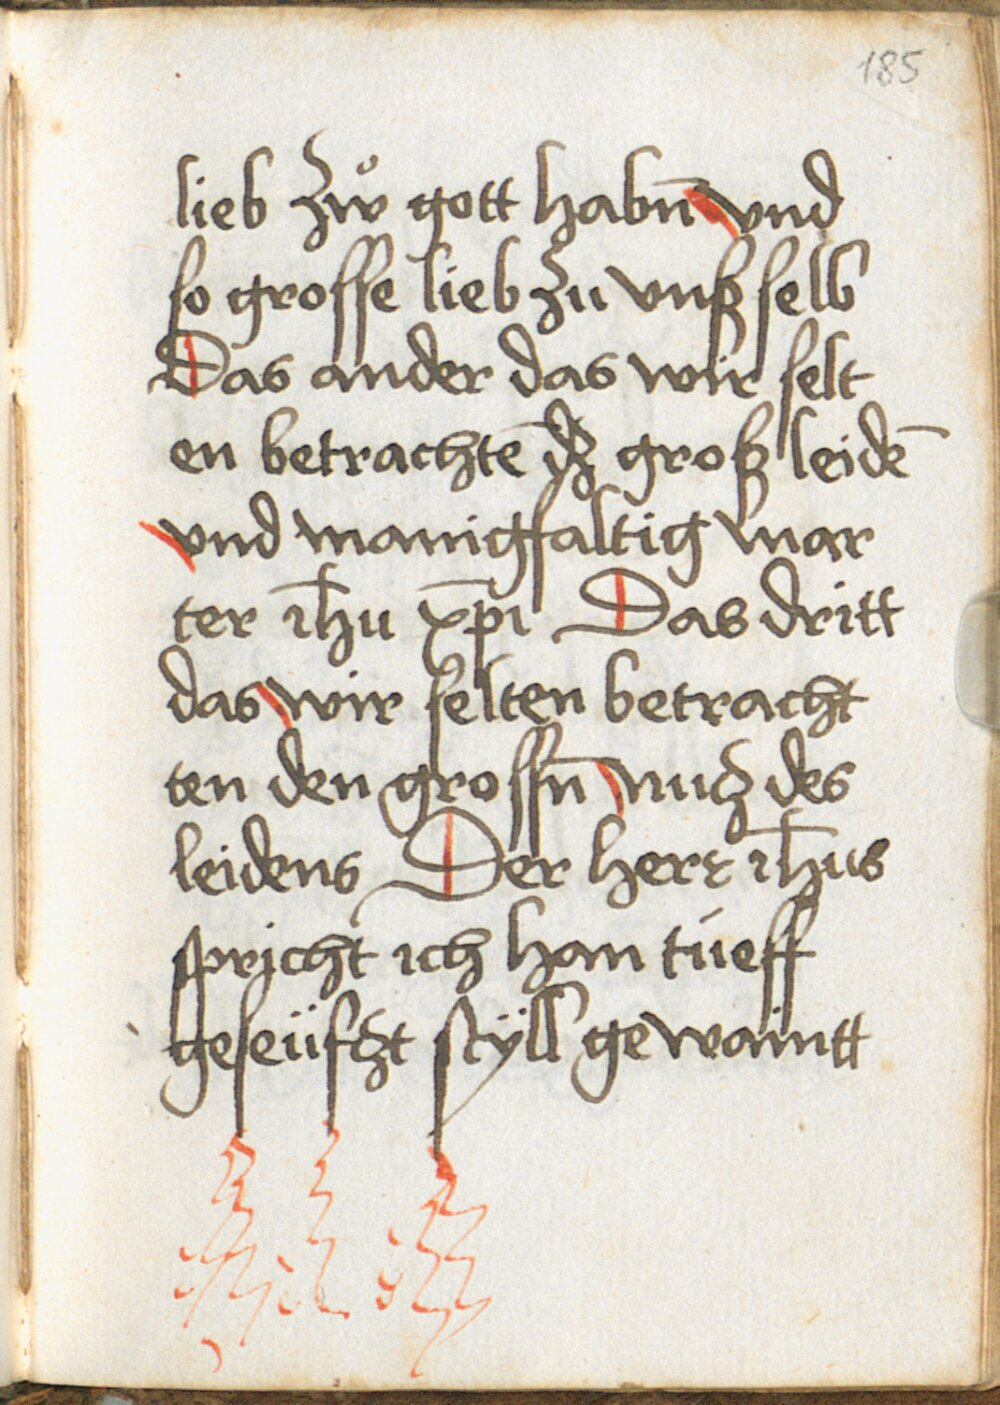 185
lieb zwͦ gott habn̄ vnd
so grosse lieb zu vnß selb
Das ander das wir selt
en betrachtē dʒ groß leidē
vnd manigfaltig mar
ter ıh̄u xp̄ı Das dritt
das wir selten betracht
ten den grossn̄ nucz des
leidens Der herꝛ ıh̄us
spricht ıch han tüeff
geseüfczt styͤll gewaintt